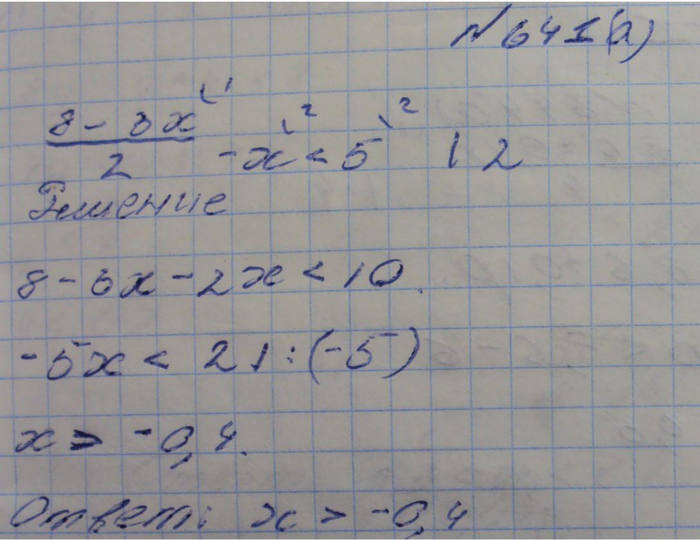 №641(а)
(8-3x)/2 ⌞1 -x ⌞2 < 5 ⌞2 | 2
Решение
8-3x-2x<10.
-5x < 2 | :(-5)
x > -0,4.
Ответ: x > -0,4